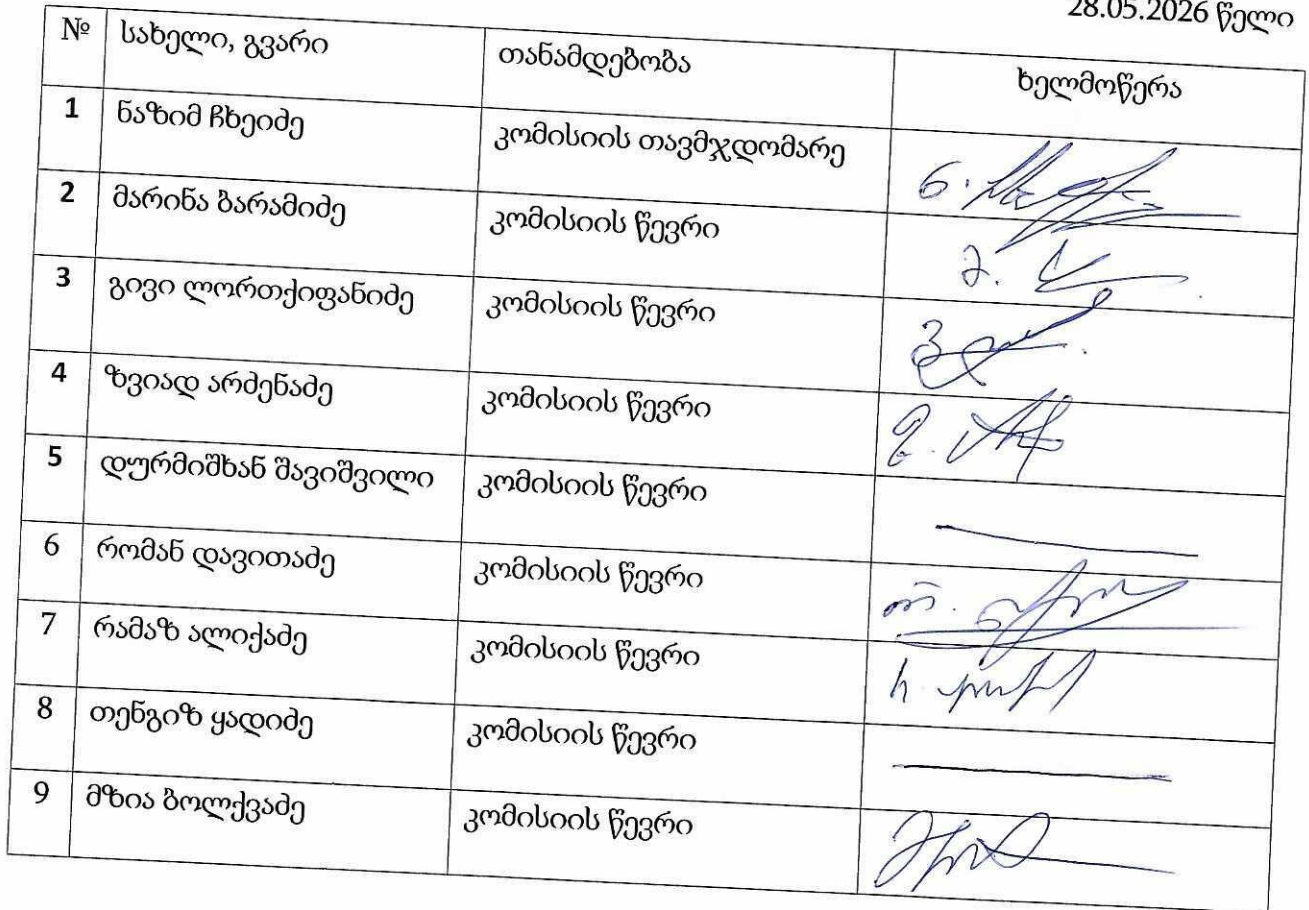 28.05.2026 წელი
№ სახელი, გვარი თანამდებობა ხელმოწერა
1 ნაზიმ ჩხეიძე კომისიის თავმჯდომარე
2 მარინა ბარამიძე კომისიის წევრი
3 გივი ლორთქიფანიძე კომისიის წევრი
4 ზვიად არძენაძე კომისიის წევრი
5 დურმიშხან შავიშვილი კომისიის წევრი
6 რომან დავითაძე კომისიის წევრი
7 რამაზ ალიქაძე კომისიის წევრი
8 თენგიზ ყადიძე კომისიის წევრი
9 მზია ბოლქვაძე კომისიის წევრი